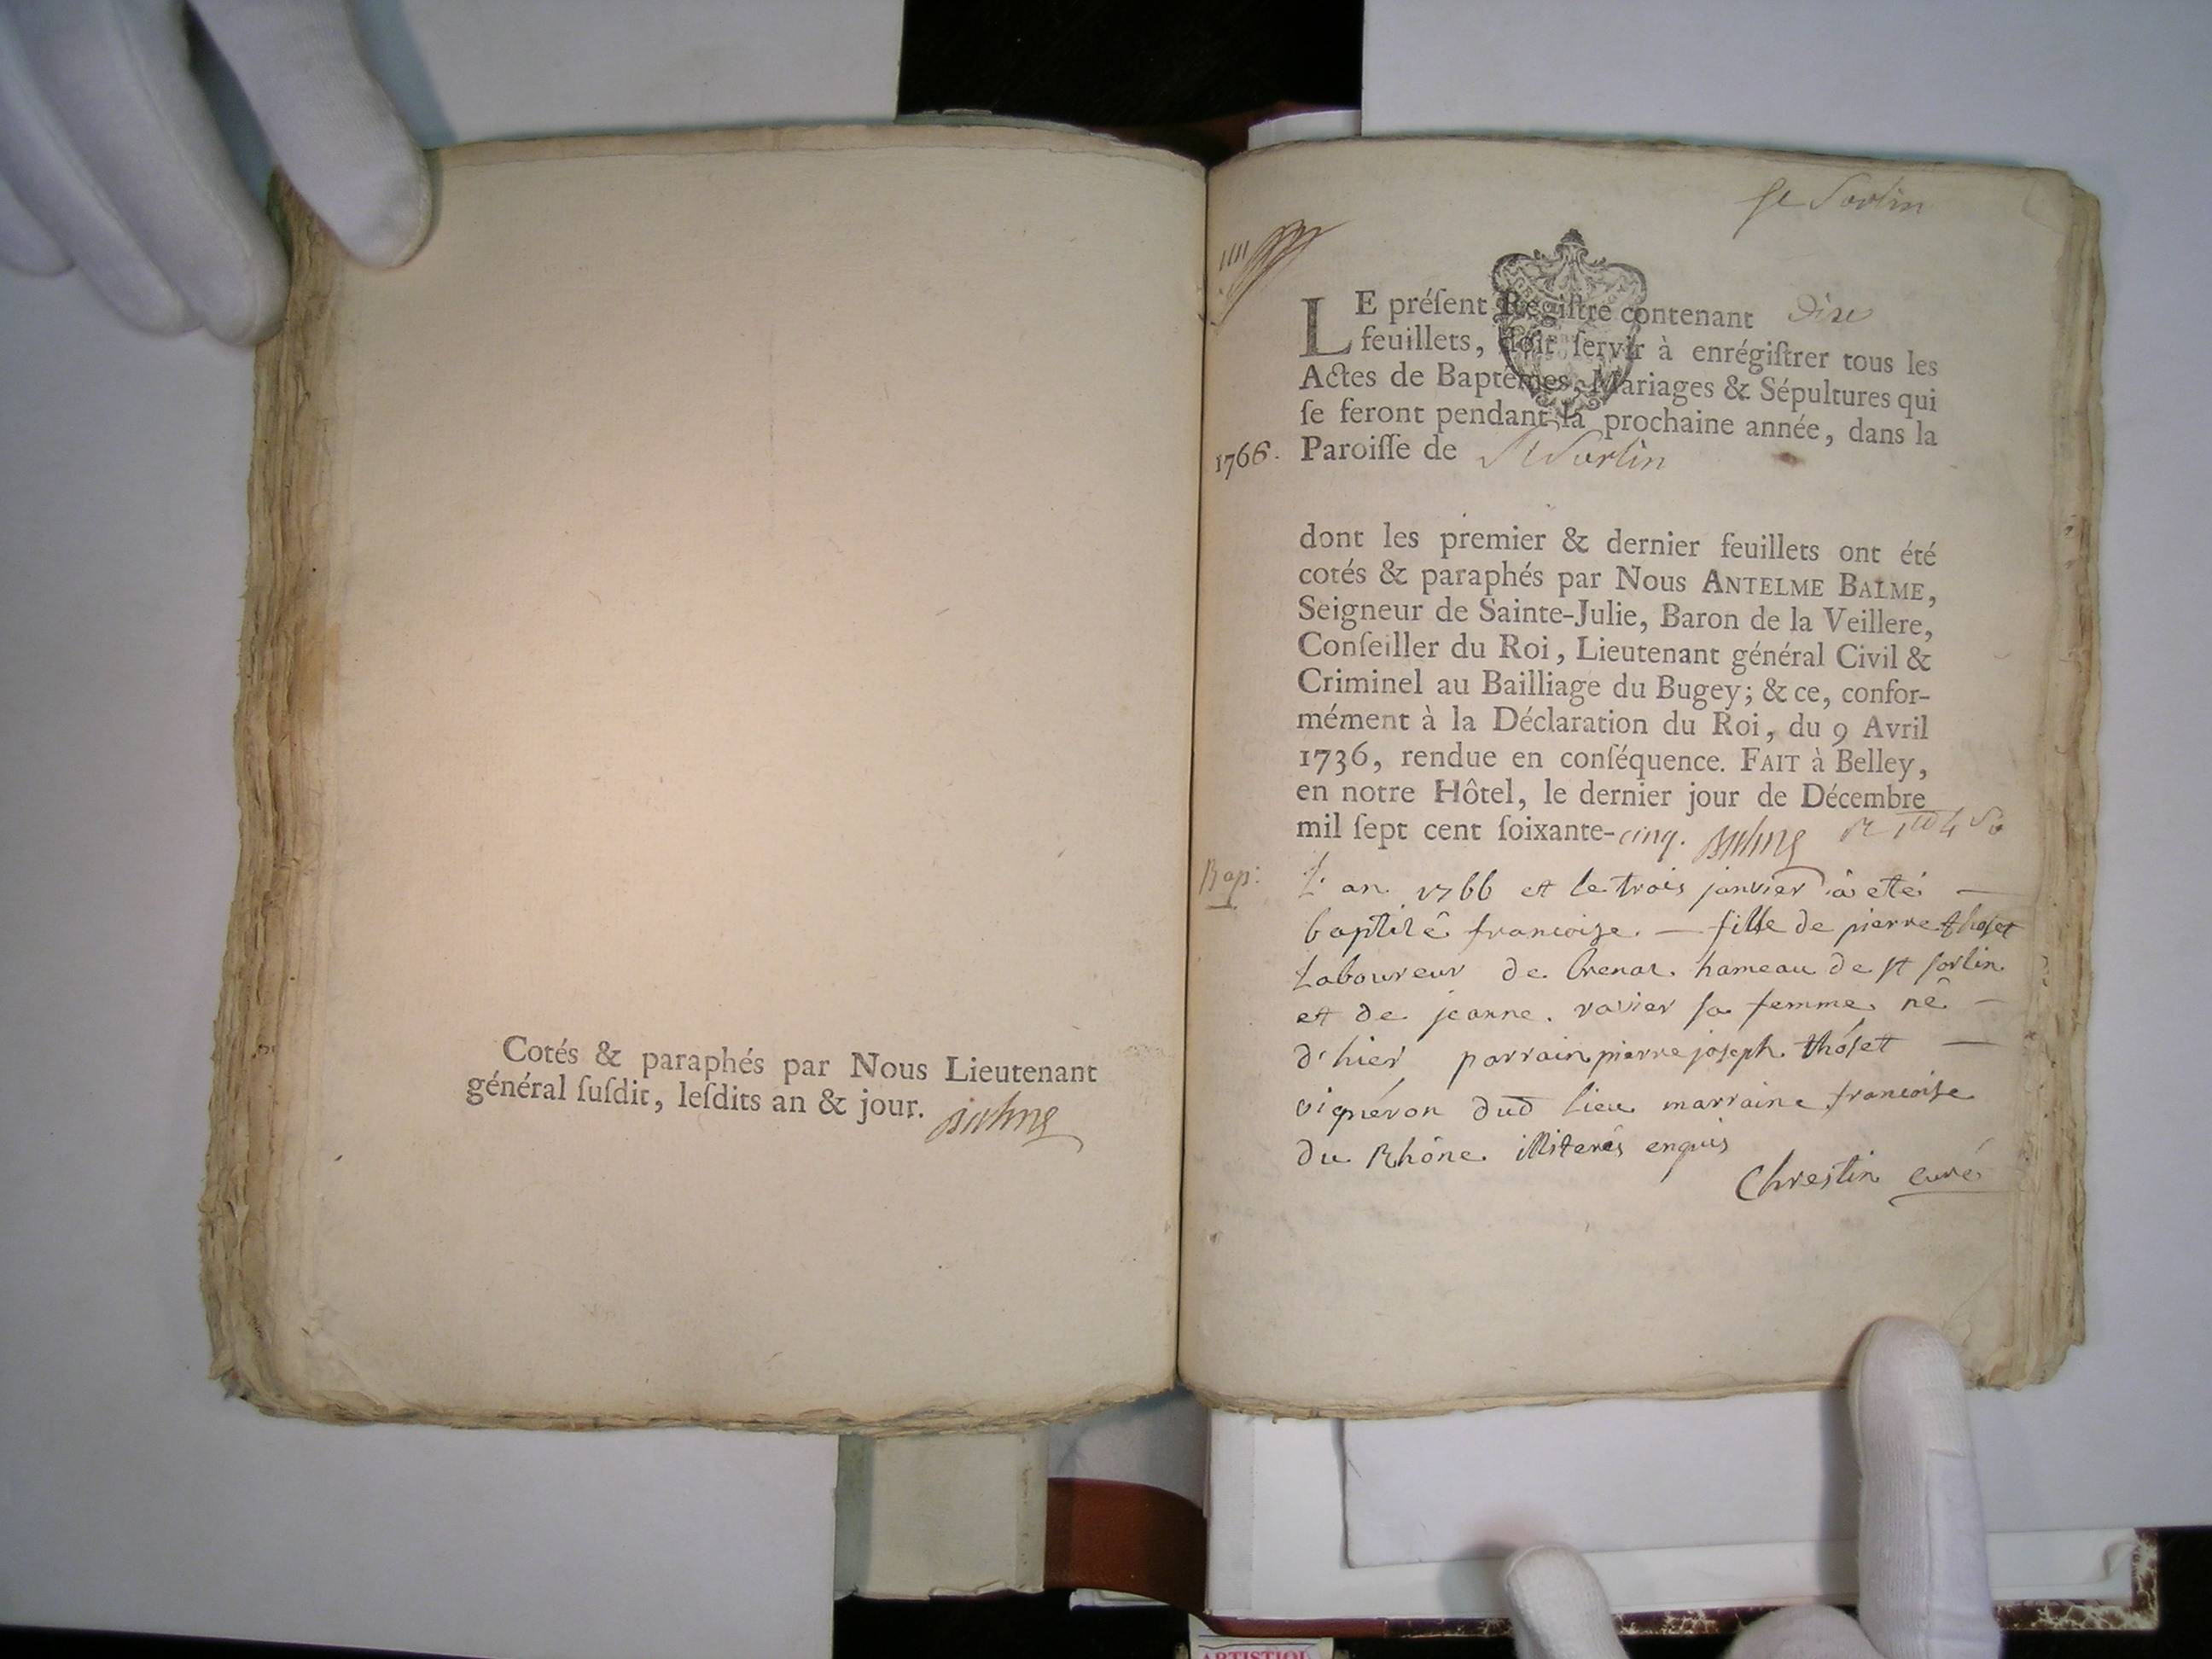 Cotés & paraphés par Nous Lieutenant
général ſuſdit, leſdits an & jour. Balme
St Sorlin
LE préſent Regiſtre contenant Dix
feuillets, doit ſervir à enrégiſtrer tous les
Actes de Baptêmes, Mariages & Sépultures qui
ſe feront pendant la prochaine année, dans la
1766. Paroiſſe de St Sorlin
dont les premier & dernier feuillets ont été
cotés & paraphés par Nous ANTELME BALME,
Seigneur de Sainte-Julie, Baron de la Veillere,
Conſeiller du Roi, Lieutenant général Civil &
Criminel au Bailliage du Bugey; & ce, confor-
mément à la Déclaration du Roi, du 9 Avril
1736, rendue en conſéquence. FAIT à Belley,
en notre Hôtel, le dernier jour de Décembre
mil ſept cent ſoixante-cinq. Balme
Bap: L'an 1766 et le trois janvier à eté
baptisé francoise fille de pierre thoset
Laboureur de brenaz hameau de st sorlin
et de jeanne ravier sa femme né
d'hier parrain pierre joseph thoset
vigneron dud lieu marraine francoise
du Rhône illiterés enquis
Chrestin curé